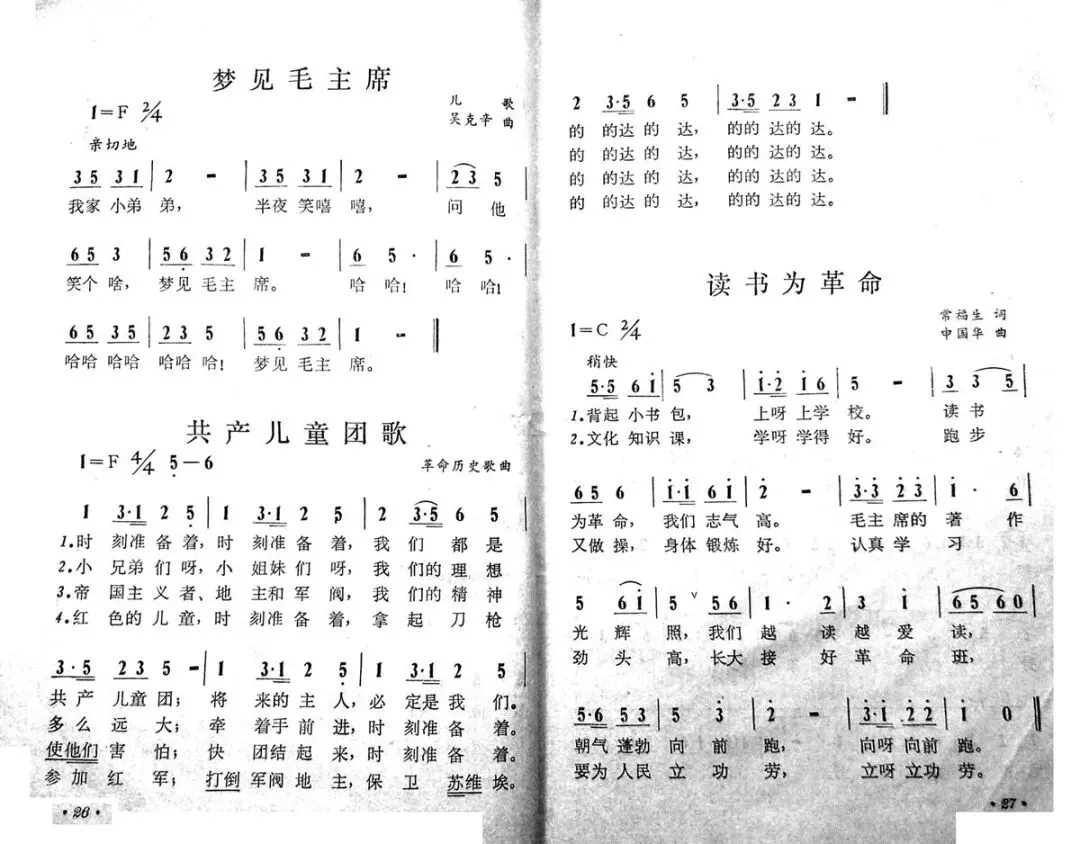 梦见毛主席
1=F 2/4
儿歌
吴克辛 曲
亲切地
3 5 3 1 | 2 - | 3 5 3 1 | 2 - | 2 3 5 |
我家 小弟 弟, 半夜 笑嘻 嘻, 问 他
6 5 3 | 5 6 3 2 | 1 - | 6 5 · | 6 5 · |
笑个 啥, 梦见 毛主 席。 哈 哈! 哈 哈!
6 5 3 5 | 2 3 5 | 5 6 3 2 | 1 - ‖
哈哈 哈哈 哈哈 哈! 梦见 毛主 席。
共产儿童团歌
1=F 4/4 5—6
革命历史歌曲
1 3·1 2 5 | 1 3·1 2 5 | 2 3·5 6 5 |
1.时 刻准 备 着, 时 刻准 备 着, 我 们 都 是
2.小 兄弟 们 呀, 小 姐妹 们 呀, 我 们的 理 想
3.帝 国主 义 者、地 主和 军 阀, 我 们的 精 神
4.红 色的 儿 童, 时 刻准 备 着, 拿 起 刀 枪
3·5 2 3 5 - | 1 3·1 2 5 | 1 3·1 2 - |
共 产 儿童 团; 将 来的 主 人, 必 定是 我 们。
多 么 远 大; 牵 着手 前 进, 时 刻准 备 着。
使他们 害 怕; 快 团结 起 来, 时 刻准 备 着。
参 加 红 军; 打倒 军阀 地 主, 保 卫 苏维 埃。
·26·
2 3·5 6 5 | 3·5 2 3 1 - ‖
的 的达 的 达, 的的 达的 达。
的 的达 的 达, 的的 达的 达。
的 的达 的 达, 的的 达的 达。
的 的达 的 达, 的的 达的 达。
读书为革命
1=C 2/4
常福生 词
中国华 曲
稍快
5·5 6 1 | 5 3 | 1·2 1 6 | 5 - | 3 3 5 |
1.背起 小书 包, 上呀 上学 校。 读 书
2.文化 知识 课, 学呀 学得 好。 跑 步
6 5 6 | 1·1 6 1 | 2 - | 3·3 2 3 | 1 · 6 |
为革 命, 我们 志气 高。 毛主 席的 著 作
又做 操, 身体 锻炼 好。 认真 学 习
5 6 1 | 5 ∨ 5 6 | 1 · 2 | 3 1 | 6 5 6 0 |
光 辉 照, 我们 越 读 越 爱 读,
劲 头 高, 长大 接 好 革 命 班,
5·6 5 3 | 5 3 | 2 - | 3·1 2 2 | 1 0 ‖
朝气 蓬勃 向 前 跑, 向呀 向前 跑。
要为 人民 立 功 劳, 立呀 立功 劳。
·27·